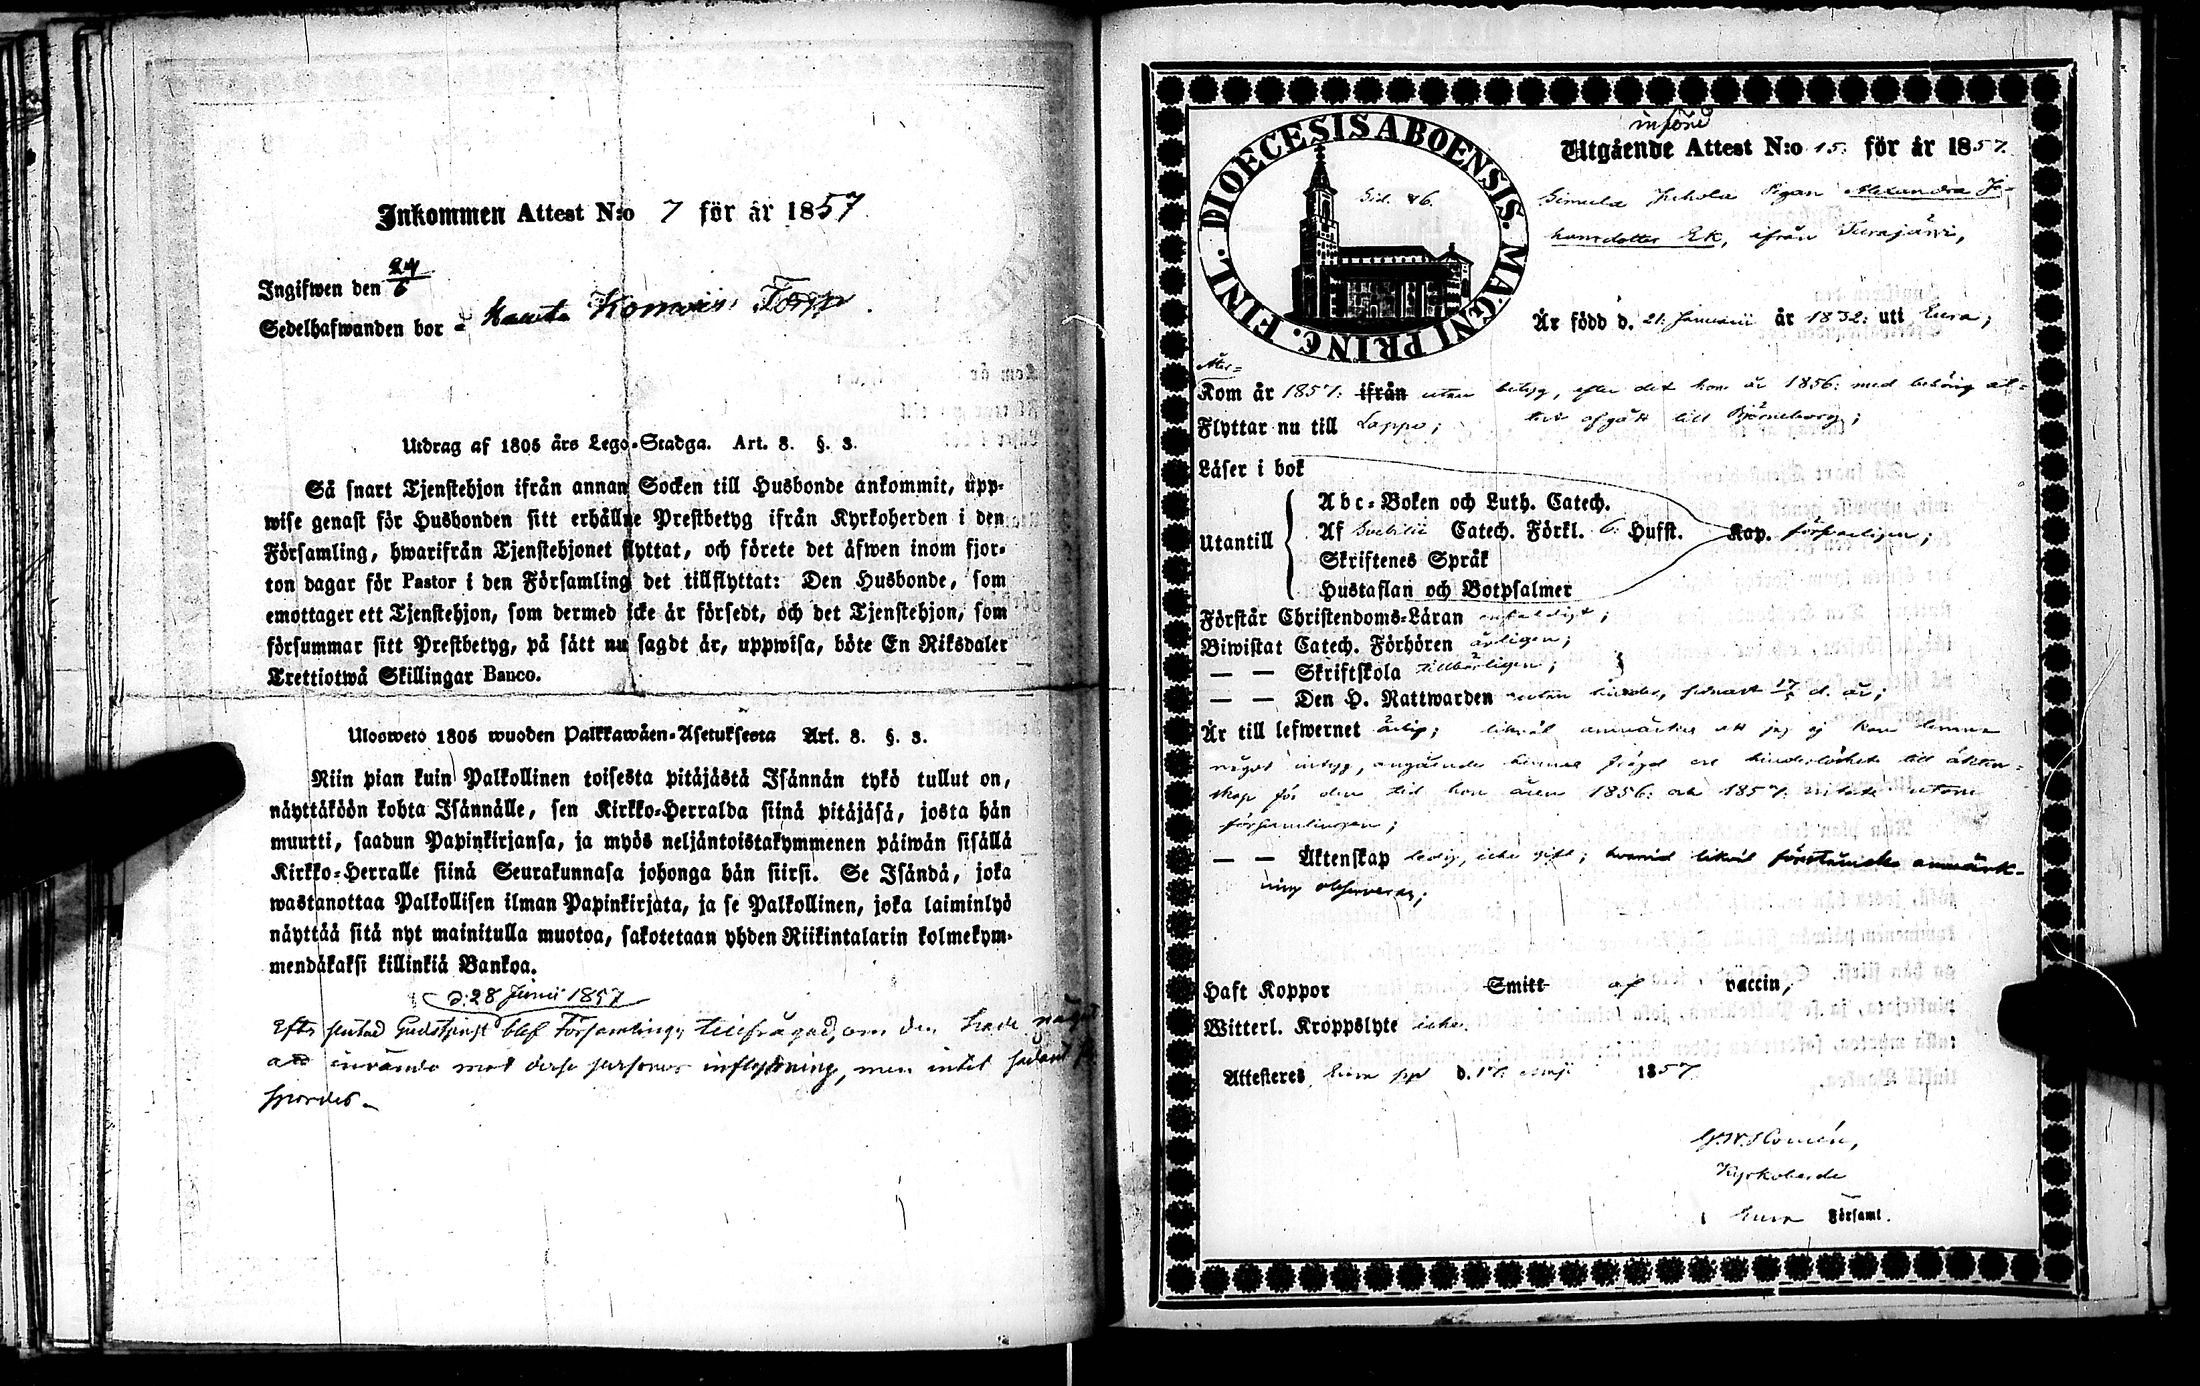 Inkommen Attest N:o 7 för år 1857
Ingifwen den 24/6
Sedelhafwanden bor å Kauta Torp
Utdrag af 1805 års Lego-Stadga. Art. 8. §. 3.
Så snart Tjenstehjon ifrån annan Socken till Husbonde ankommit, upp-
wise genast för Husbonden sitt erhållne Prestbetyg ifrån Kyrkoherden i den
Församling, hwarifrån Tjenstehjonet flyttat, och förete det äfwen inom fjor-
ton dagar för Pastor i den Församling det tillflyttat: Den Husbonde, som
emottager ett Tjenstehjon, som dermed icke är försedt, och det Tjenstehjon, som
försummar sitt Prestbetyg, på sätt nu sagdt är, uppwisa, böte En Riksdaler
Trettiotwå Skillingar Banco.
Uloswetó 1805 wuoden Palkkawäen-Asetuksesta Art. 8. §. 3.
Niin pian kuin Palkollinen toisesta pitäjästä Isännän tykö tullut on,
näyttäköön kohta Isännälle, sen Kirkko-Herralda siinä pitäjäsä, josta hän
muutti, saadun Papinkirjansa, ja myös neljäntoistakymmenen päiwän sisällä
Kirkko-Herralle siinä Seurakunnasa johonga hän siirsi. Se Isändä, joka
wastanottaa Palkollisen ilman Papinkirjata, ja se Palkollinen, joka laiminlyö
näyttää sitä nyt mainitulla muotoa, sakotetaan yhden Riikintalarin kolmekym-
mendäkaksi killinkiä Bankoa.
d: 28 Junii 1857
Efter slutad Gudstjenst blef Församlingen tillfrågad, om den hade något
att invända mot dessa personers inflyttning, men intet sådant
spordes.
införd
Utgående Attest N:o 15. för år 1857.
DIOECESIS ABOENSIS. MAGNI PRINC. FINL.
Sid. 46.
Pigan Alexandra Jo-
hansdotter Ek, ifrån Turajärvi,
Är född d. 21. Januarii år 1832: uti Eura;
Åter-
Kom år 1857: ifrån utan betyg, efter det hon år 1856: med behörig at-
Flyttar nu till Lappo; test afgått till Björneborg;
Läser i bok
Utantill
Abc-Boken och Luth. Catech.
Af Svebilii Catech. Förkl. 6. Hufst. Kap. försvarligen;
Skriftenes Språk
Hustaflan och Botpsalmer
Förstår Christendoms-Läran enfaldigt;
Biwistat Catech. Förhören årligen;
— — Skriftskola tillbörligen;
— — Den H. Nattwarden utan hinder, senast 17/5 d. år;
Är till lefwernet ärlig; likväl anmärkes att jag ej kan lemna
något intyg, angående hennes frägd och hinderlöshet till äkten-
skap för den tid hon åren 1856: och 1857: vistats utom
församlingen;
— — Äktenskap ledig, icke gift; hvarvid likväl förestående anmärk-
ning observeras;
Haft Koppor Smitt af vaccin;
Witterl. Kroppslyte icke.
Attesteres, Eura d. 17. Maji 1857.
Kyrkoherde
i Eura Församl.